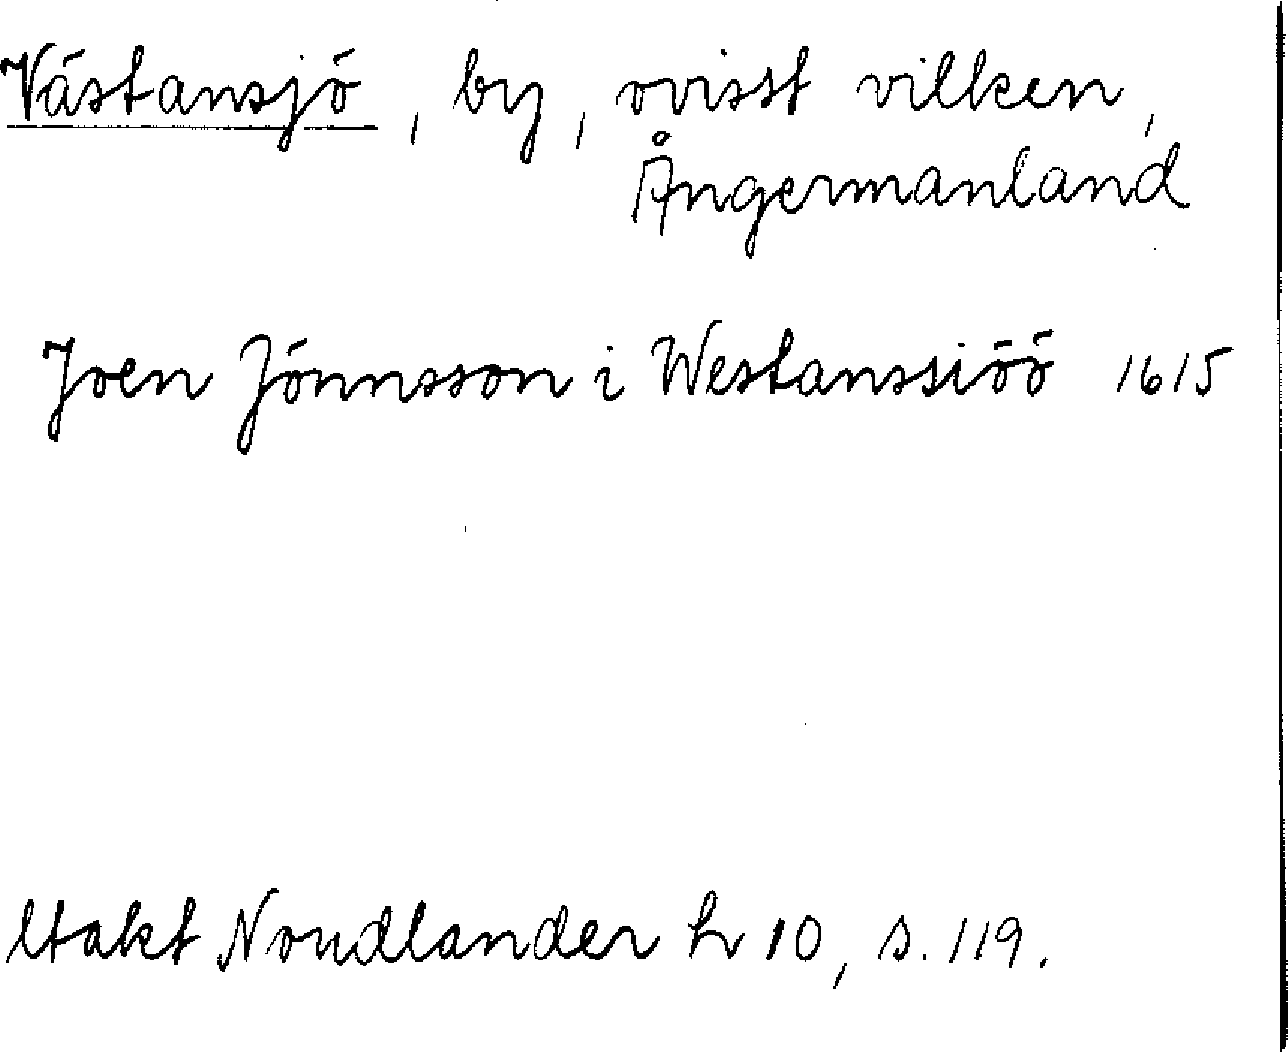 Västansjö, by, ovisst vilken,
Ångermanland
Joen Jönnsson i Westanssiöö 1615
ltakt Nordlander h 10, s. 119.